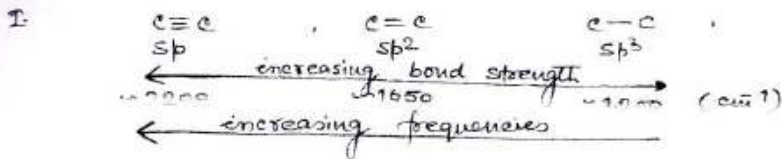 I.
C≡C , C=C C—C .
sp sp2 sp3
increasing bond strength
~1650 (cm-1)
increasing frequencies